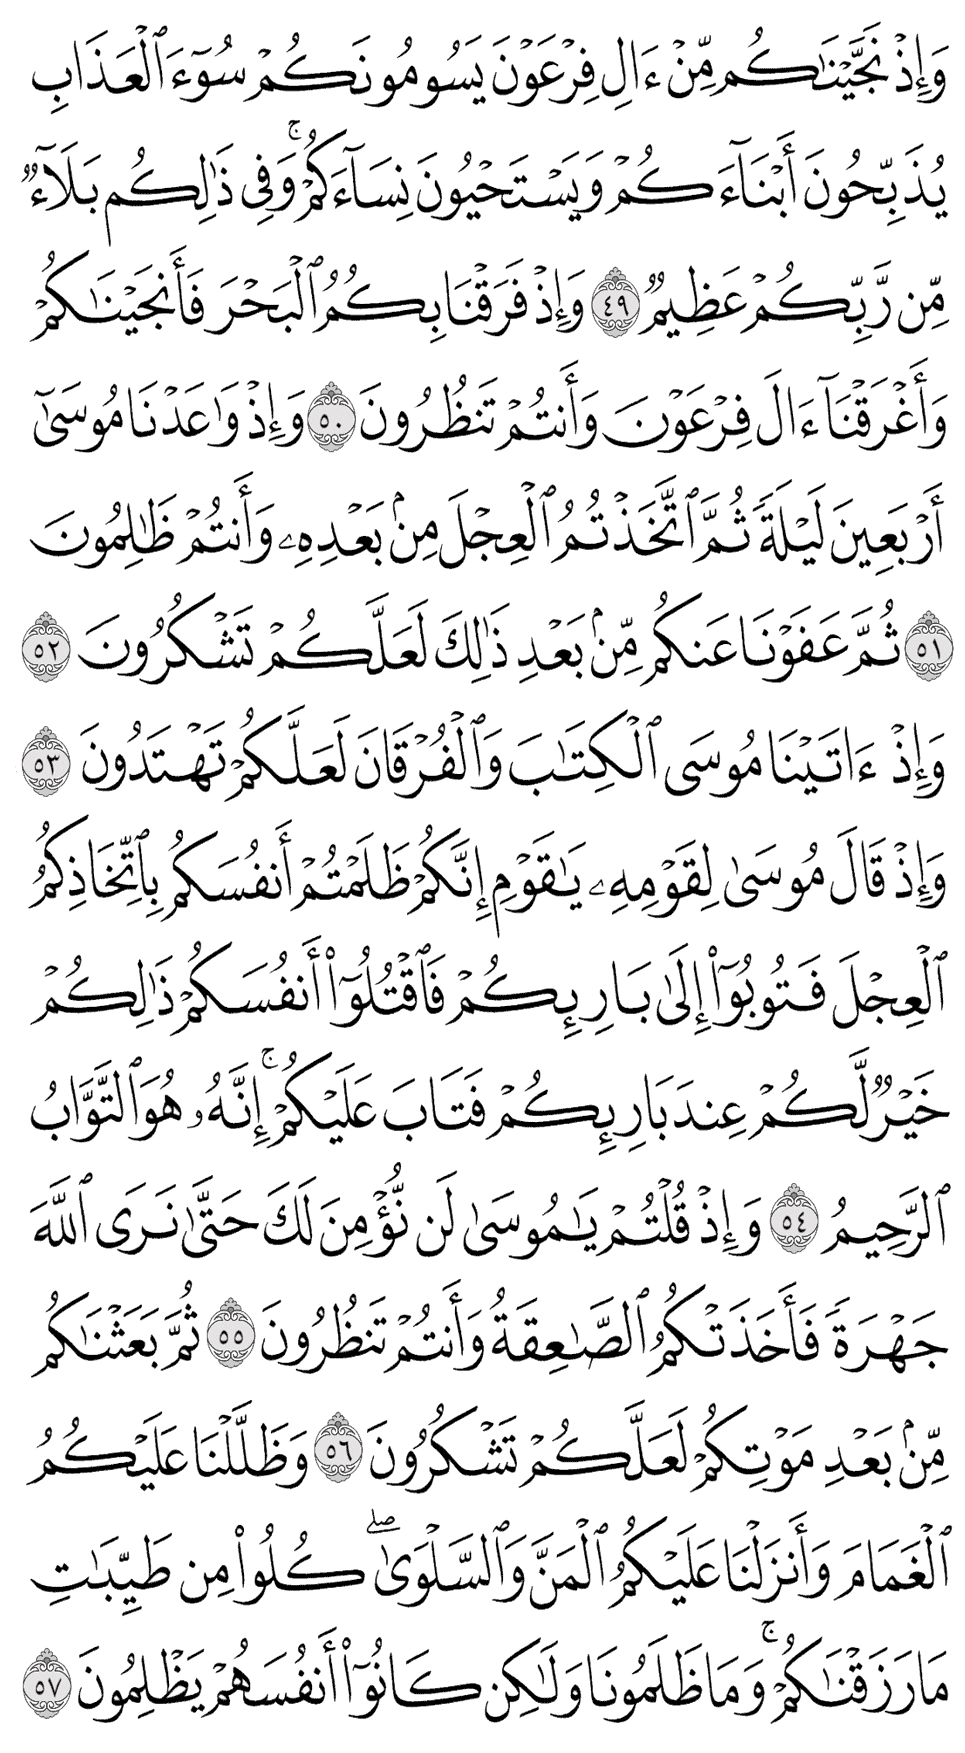 وَإِذْ نَجَّيْنَٰكُم مِّنْ ءَالِ فِرْعَوْنَ يَسُومُونَكُمْ سُوٓءَ ٱلْعَذَابِ
يُذَبِّحُونَ أَبْنَآءَكُمْ وَيَسْتَحْيُونَ نِسَآءَكُمْ ۚ وَفِى ذَٰلِكُم بَلَآءٌ
مِّن رَّبِّكُمْ عَظِيمٌ ٤٩ وَإِذْ فَرَقْنَا بِكُمُ ٱلْبَحْرَ فَأَنجَيْنَٰكُمْ
وَأَغْرَقْنَآ ءَالَ فِرْعَوْنَ وَأَنتُمْ تَنظُرُونَ ٥٠ وَإِذْ وَٰعَدْنَا مُوسَىٰٓ
أَرْبَعِينَ لَيْلَةً ثُمَّ ٱتَّخَذْتُمُ ٱلْعِجْلَ مِنۢ بَعْدِهِۦ وَأَنتُمْ ظَٰلِمُونَ
٥١ ثُمَّ عَفَوْنَا عَنكُم مِّنۢ بَعْدِ ذَٰلِكَ لَعَلَّكُمْ تَشْكُرُونَ ٥٢
وَإِذْ ءَاتَيْنَا مُوسَى ٱلْكِتَٰبَ وَٱلْفُرْقَانَ لَعَلَّكُمْ تَهْتَدُونَ ٥٣
وَإِذْ قَالَ مُوسَىٰ لِقَوْمِهِۦ يَٰقَوْمِ إِنَّكُمْ ظَلَمْتُمْ أَنفُسَكُم بِٱتِّخَاذِكُمُ
ٱلْعِجْلَ فَتُوبُوٓا۟ إِلَىٰ بَارِئِكُمْ فَٱقْتُلُوٓا۟ أَنفُسَكُمْ ذَٰلِكُمْ
خَيْرٌ لَّكُمْ عِندَ بَارِئِكُمْ فَتَابَ عَلَيْكُمْ ۚ إِنَّهُۥ هُوَ ٱلتَّوَّابُ
ٱلرَّحِيمُ ٥٤ وَإِذْ قُلْتُمْ يَٰمُوسَىٰ لَن نُّؤْمِنَ لَكَ حَتَّىٰ نَرَى ٱللَّهَ
جَهْرَةً فَأَخَذَتْكُمُ ٱلصَّٰعِقَةُ وَأَنتُمْ تَنظُرُونَ ٥٥ ثُمَّ بَعَثْنَٰكُم
مِّنۢ بَعْدِ مَوْتِكُمْ لَعَلَّكُمْ تَشْكُرُونَ ٥٦ وَظَلَّلْنَا عَلَيْكُمُ
ٱلْغَمَامَ وَأَنزَلْنَا عَلَيْكُمُ ٱلْمَنَّ وَٱلسَّلْوَىٰ ۖ كُلُوا۟ مِن طَيِّبَٰتِ
مَا رَزَقْنَٰكُمْ ۚ وَمَا ظَلَمُونَا وَلَٰكِن كَانُوٓا۟ أَنفُسَهُمْ يَظْلِمُونَ ٥٧